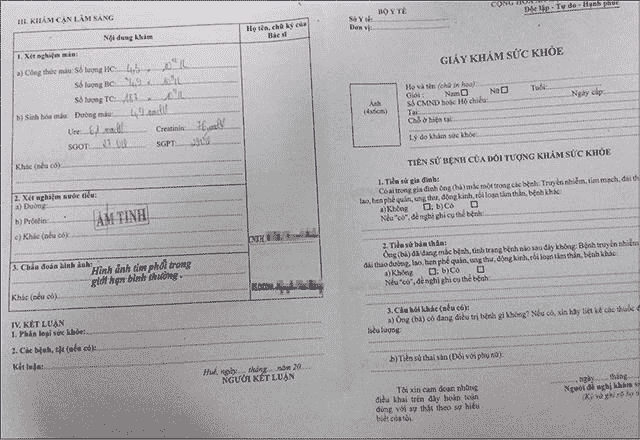 III. KHÁM CẬN LÂM SÀNG
Nội dung khám
Họ tên, chữ ký của
Bác sĩ
1. Xét nghiệm máu:
a) Công thức máu: Số lượng HC: 4,5 .
Số lượng BC:
Số lượng TC:
b) Sinh hóa máu: Đường máu: 4,9
Ure: Creatinin: 76
SGOT: 27 SGPT:
Khác (nếu có):
2. Xét nghiệm nước tiểu:
a) Đường:
b) Prôtêin:
ÂM TÍNH
c) Khác (nếu có):
3. Chẩn đoán hình ảnh:
Hình ảnh tim phổi trong
giới hạn bình thường.
Khác (nếu có):
IV. KẾT LUẬN
1. Phân loại sức khỏe:
2. Các bệnh, tật (nếu có):
Kết luận:
Huế, ngày..... tháng..... năm 20
NGƯỜI KẾT LUẬN
BỘ Y TẾ
Số Y tế:
Đơn vị:
CỘNG HÒA
Độc lập - Tự do - Hạnh phúc
GIẤY KHÁM SỨC KHỎE
Ảnh
(4x6cm)
Họ và tên (chữ in hoa)
Giới: Nam Nữ Tuổi:
Số CMND hoặc Hộ chiếu: Ngày cấp:
Tại:
Chỗ ở hiện tại:
Lý do khám sức khỏe:
TIỀN SỬ BỆNH CỦA ĐỐI TƯỢNG KHÁM SỨC KHỎE
1. Tiền sử gia đình:
Có ai trong gia đình ông (bà) mắc một trong các bệnh: Truyền nhiễm, tim mạch, đái thá
lao, hen phế quản, ung thư, động kinh, rối loạn tâm thần, bệnh khác:
a) Không ; b) Có
Nếu "có", đề nghị ghi cụ thể bệnh:
2. Tiền sử bản thân:
Ông (bà) đã đang mắc bệnh, tình trạng bệnh nào sau đây không: Bệnh truyền nhiễm
đái tháo đường, lao, hen phế quản, ung thư, động kinh, rối loạn tâm thần, bệnh khác:
a) Không ; b) Có
Nếu "có", đề nghị ghi cụ thể bệnh:
3. Câu hỏi khác (nếu có):
a) Ông (bà) có đang điều trị bệnh gì không? Nếu có, xin hãy liệt kê các thuốc đ
liều lượng:
b) Tiền sử thai sản (Đối với phụ nữ):
Tôi xin cam đoan những
điều khai trên đây hoàn toàn
đúng với sự thật theo sự hiểu
biết của tôi.
, ngày..... tháng
Người đề nghị khám s
(Ký và ghi rõ họ t